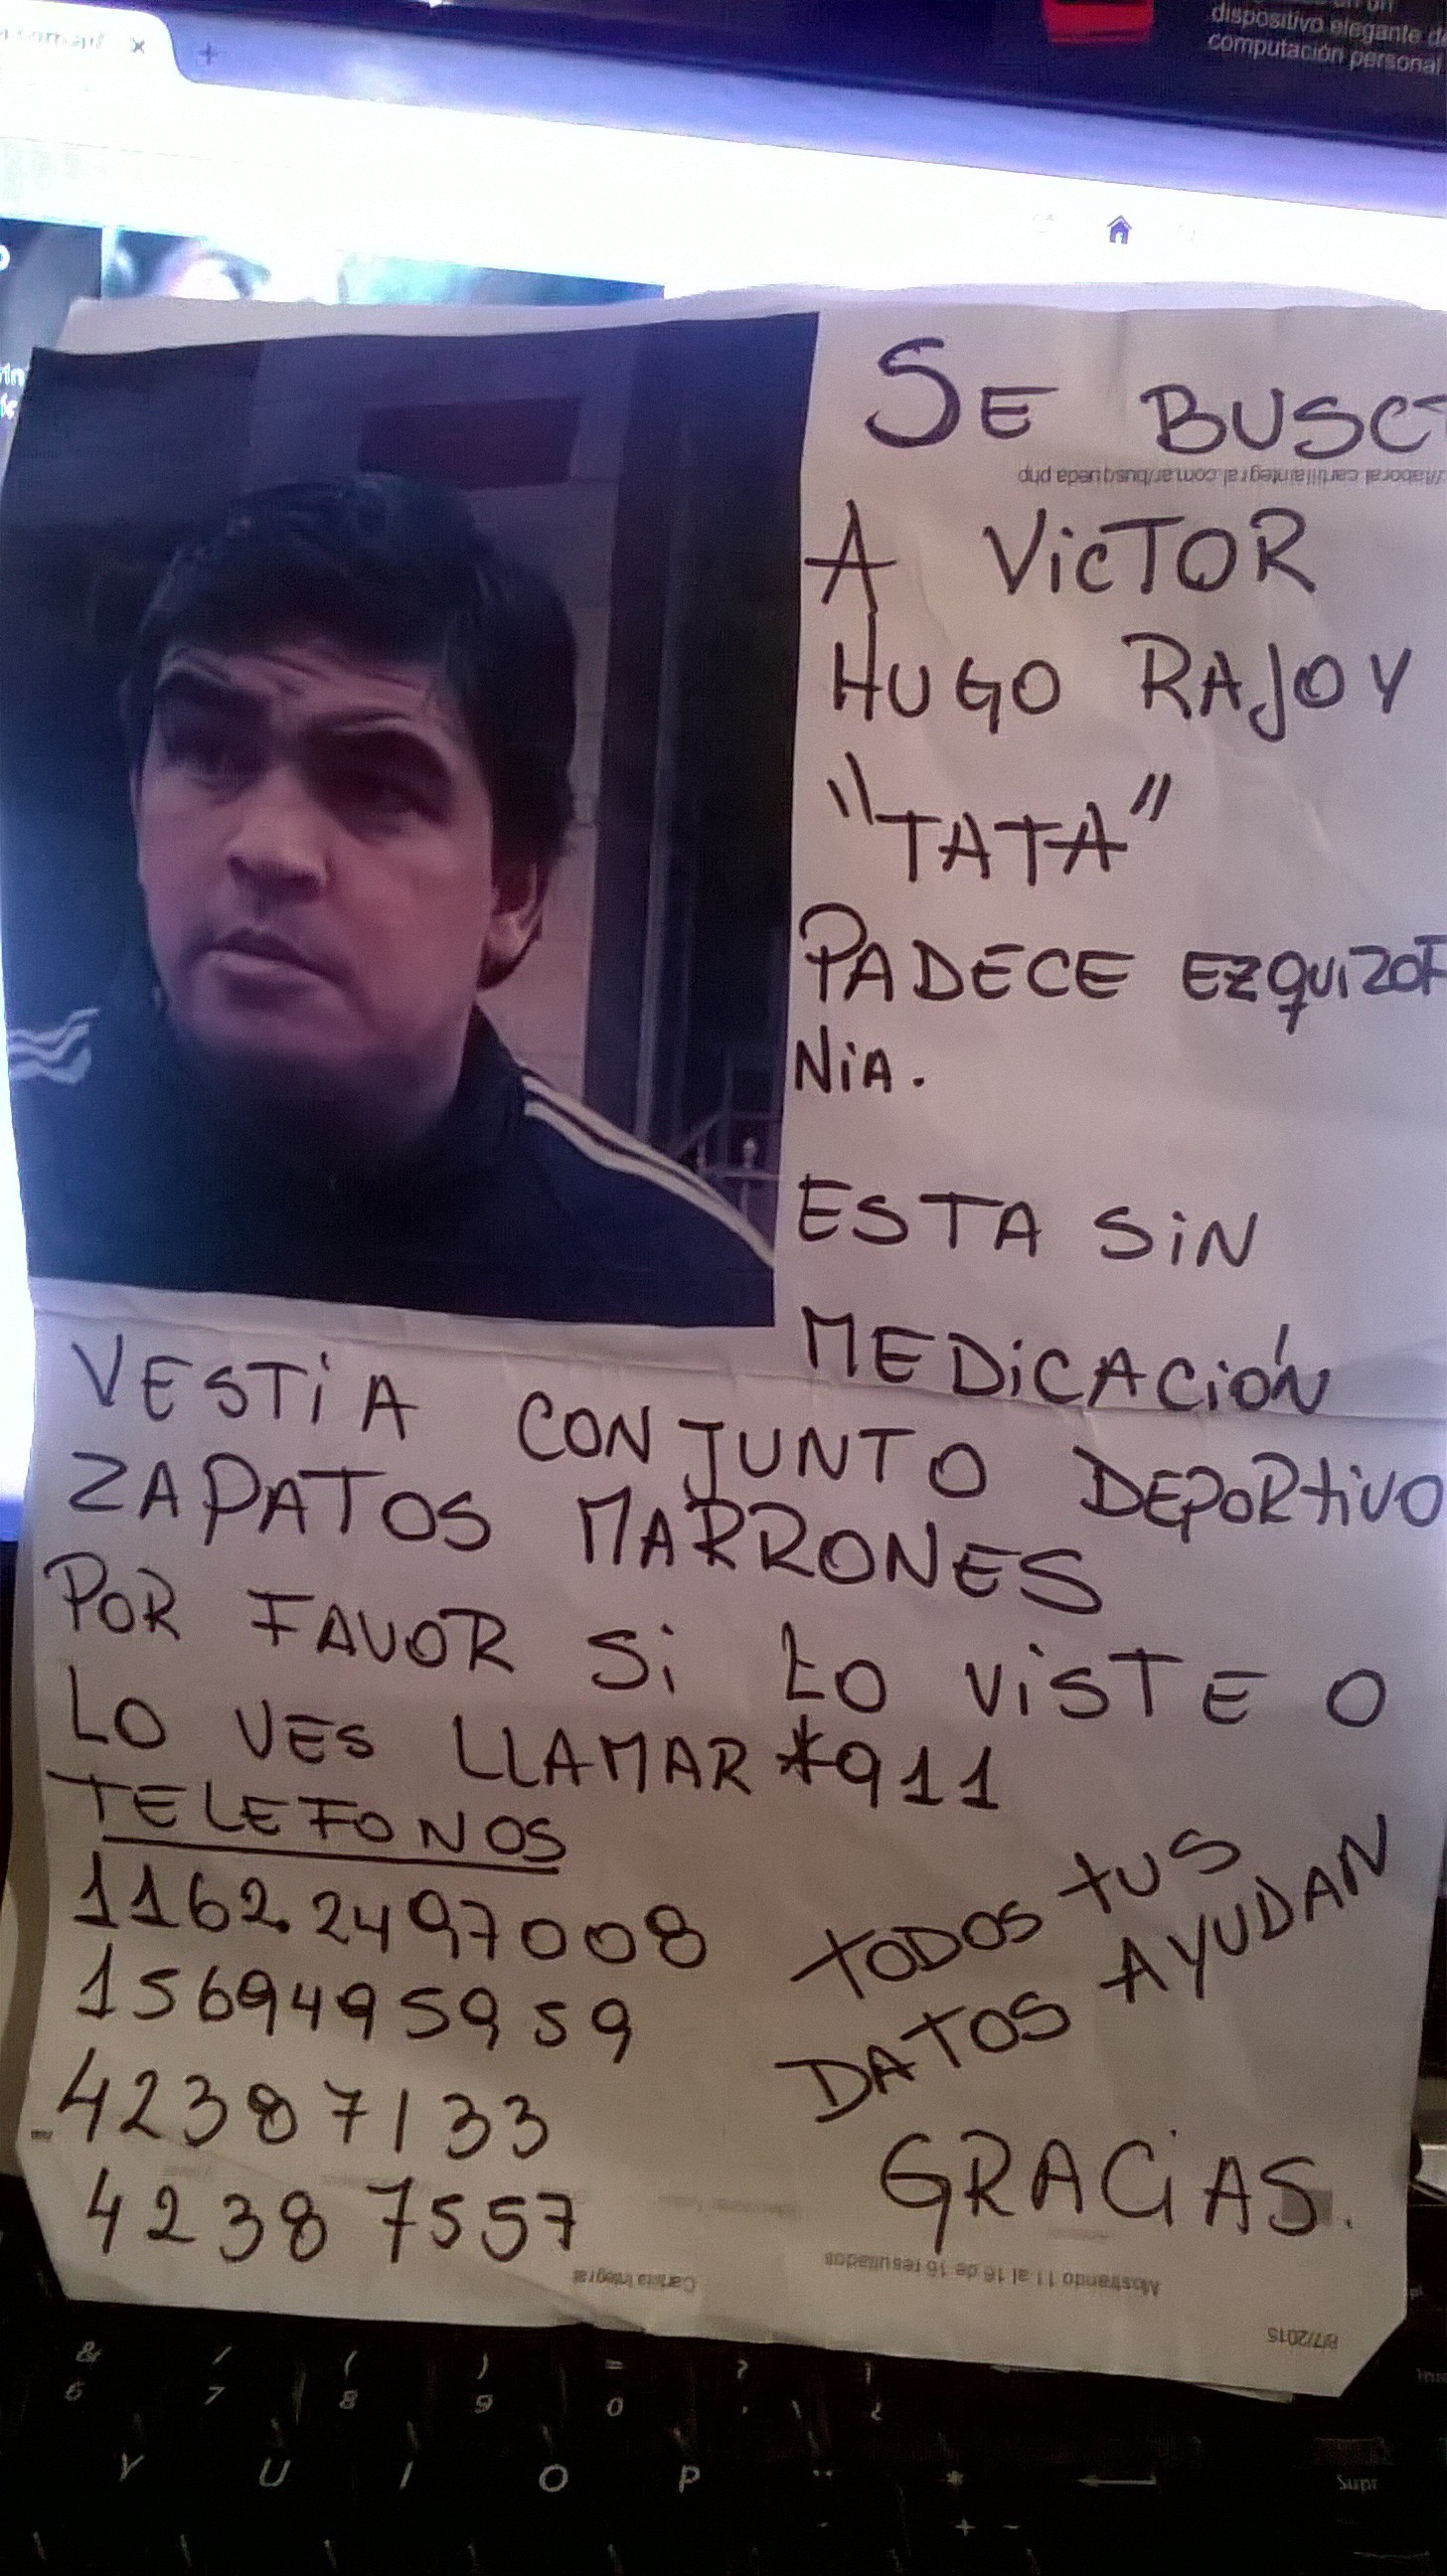 dispositivo elegante de
computación personal
SE BUSCA
laboral.cartillaintegral.com.ar/busqueda.php
A VicTOR
HUGO RAJOY
"TATA"
PADECE EZQUIZOF
NiA.
ESTA SiN
MEDiCACiÓN
VESTiA CONJUNTO DEPORTIVO
ZAPATOS MARRONES
POR FAVOR Si LO ViSTE O
LO VES LLAMAR *911
TELEFONOS
1162.2497008
1569495959
42387133
42387557
TODOS TUS
DATOS AYUDAN
GRACiAS.
Mostrando 11 al 16 de 16 resultados
Cartilla Integral
8/7/2015
& / ( ) = ? ¡
6 7 8 9 0 ' ¿
Y U I O P ¨ *
Supr
+ -